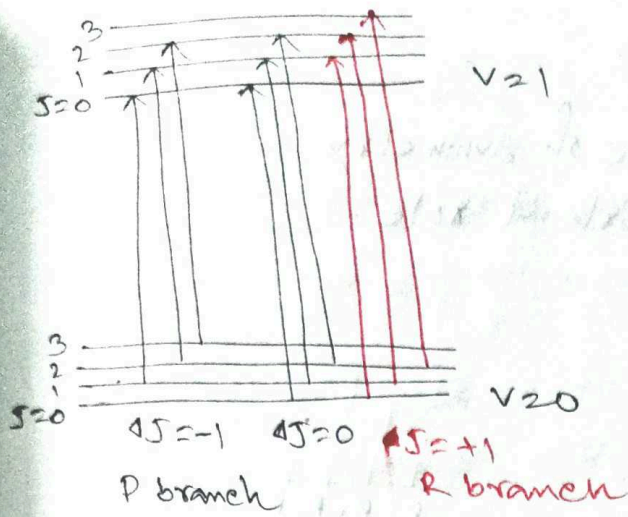 3
2
1
J=0
V=1
3
2
1
J=0
V=0
ΔJ=-1 ΔJ=0 ΔJ=+1
P branch R branch